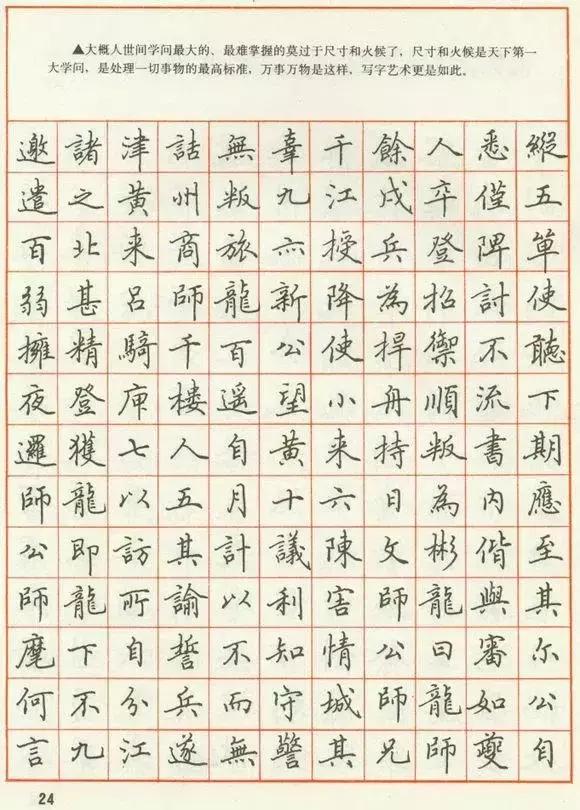 ▲大概人世间学问最大的、最难掌握的莫过于尺寸和火候了，尺寸和火候是天下第一
大学问，是处理一切事物的最高标准，万事万物是这样，写字艺术更是如此。
邀諸津詰無辜千餘人悉縱
遣之黃州叛九江戍卒僅五
百北来商旅亦授兵登陴單
弱甚呂師龍新降為招討使
擁精騎千百公使捍禦不聽
夜登庫樓遥望小舟順流下
邏獲七人自黃来持叛書期
師龍以五月十六日為內應
公即訪其計議陳文彬偕至
師龍所諭以利害師龍與其
麾下自誓不知情公曰審尔
何不分兵而守城師龍如公
言九江遂無警其兄師夔自
24